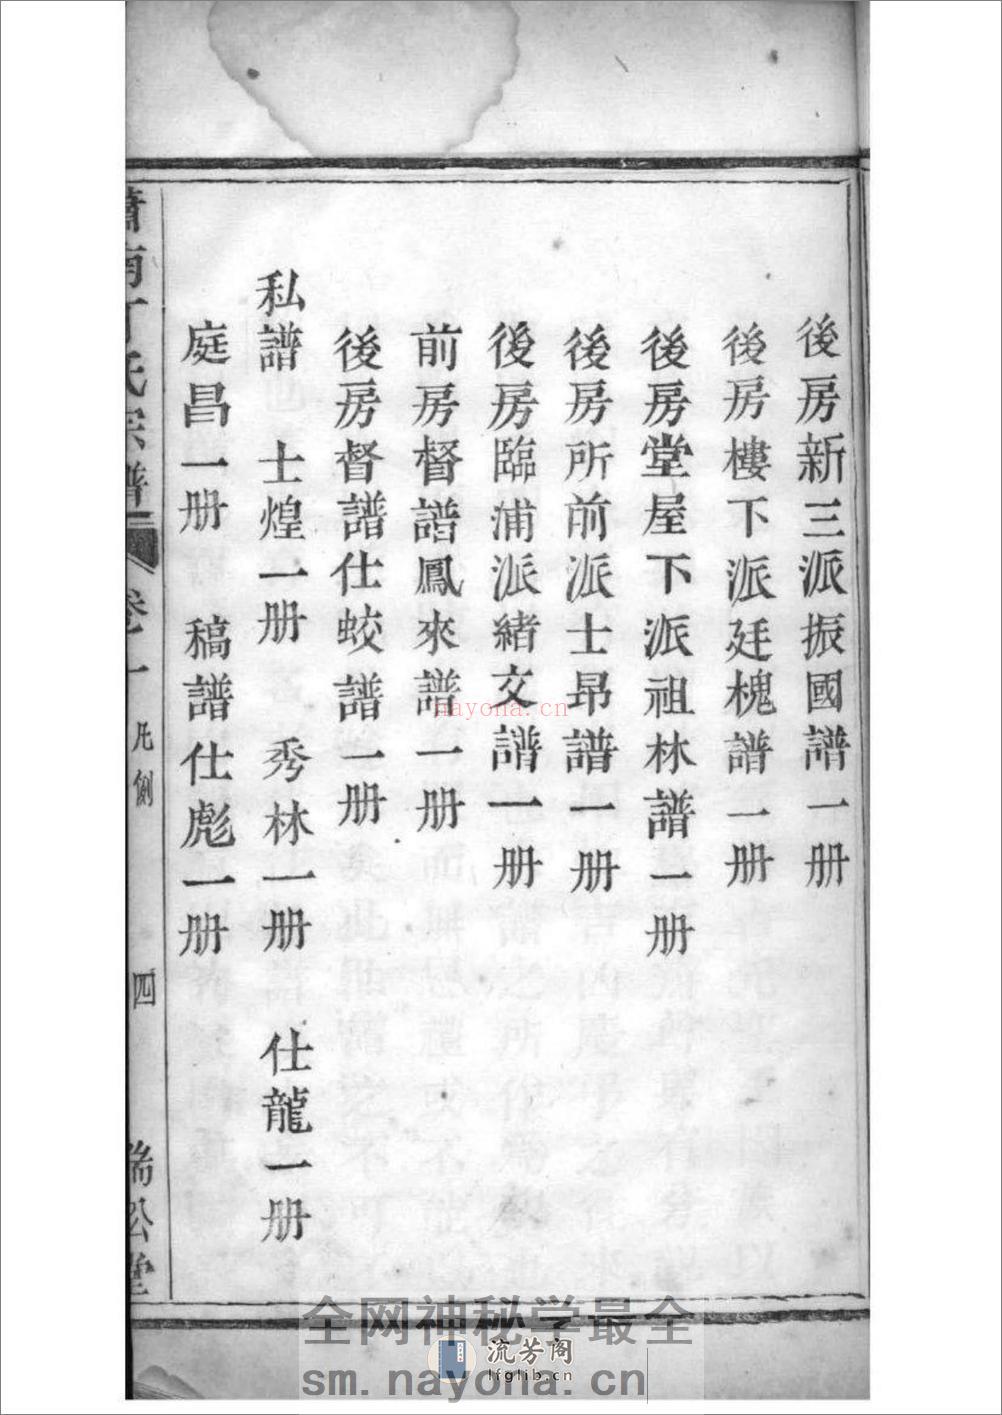 後房新三派振國譜一册
後房樓下派廷槐譜一册
後房堂屋下派祖林譜一册
後房所前派士昻譜一册
後房臨浦派緒文譜一册
前房督譜鳳來譜一册
後房督譜仕蛟譜一册
私譜 士煌一册 秀林一册 仕龍一册
庭昌一册 稿譜仕彪一册
蕭南丁氏宗譜 卷一 凡例 四
nayona.cn
全网神秘学最全
流芳阁
lfglib.cn
sm.nayona.cn